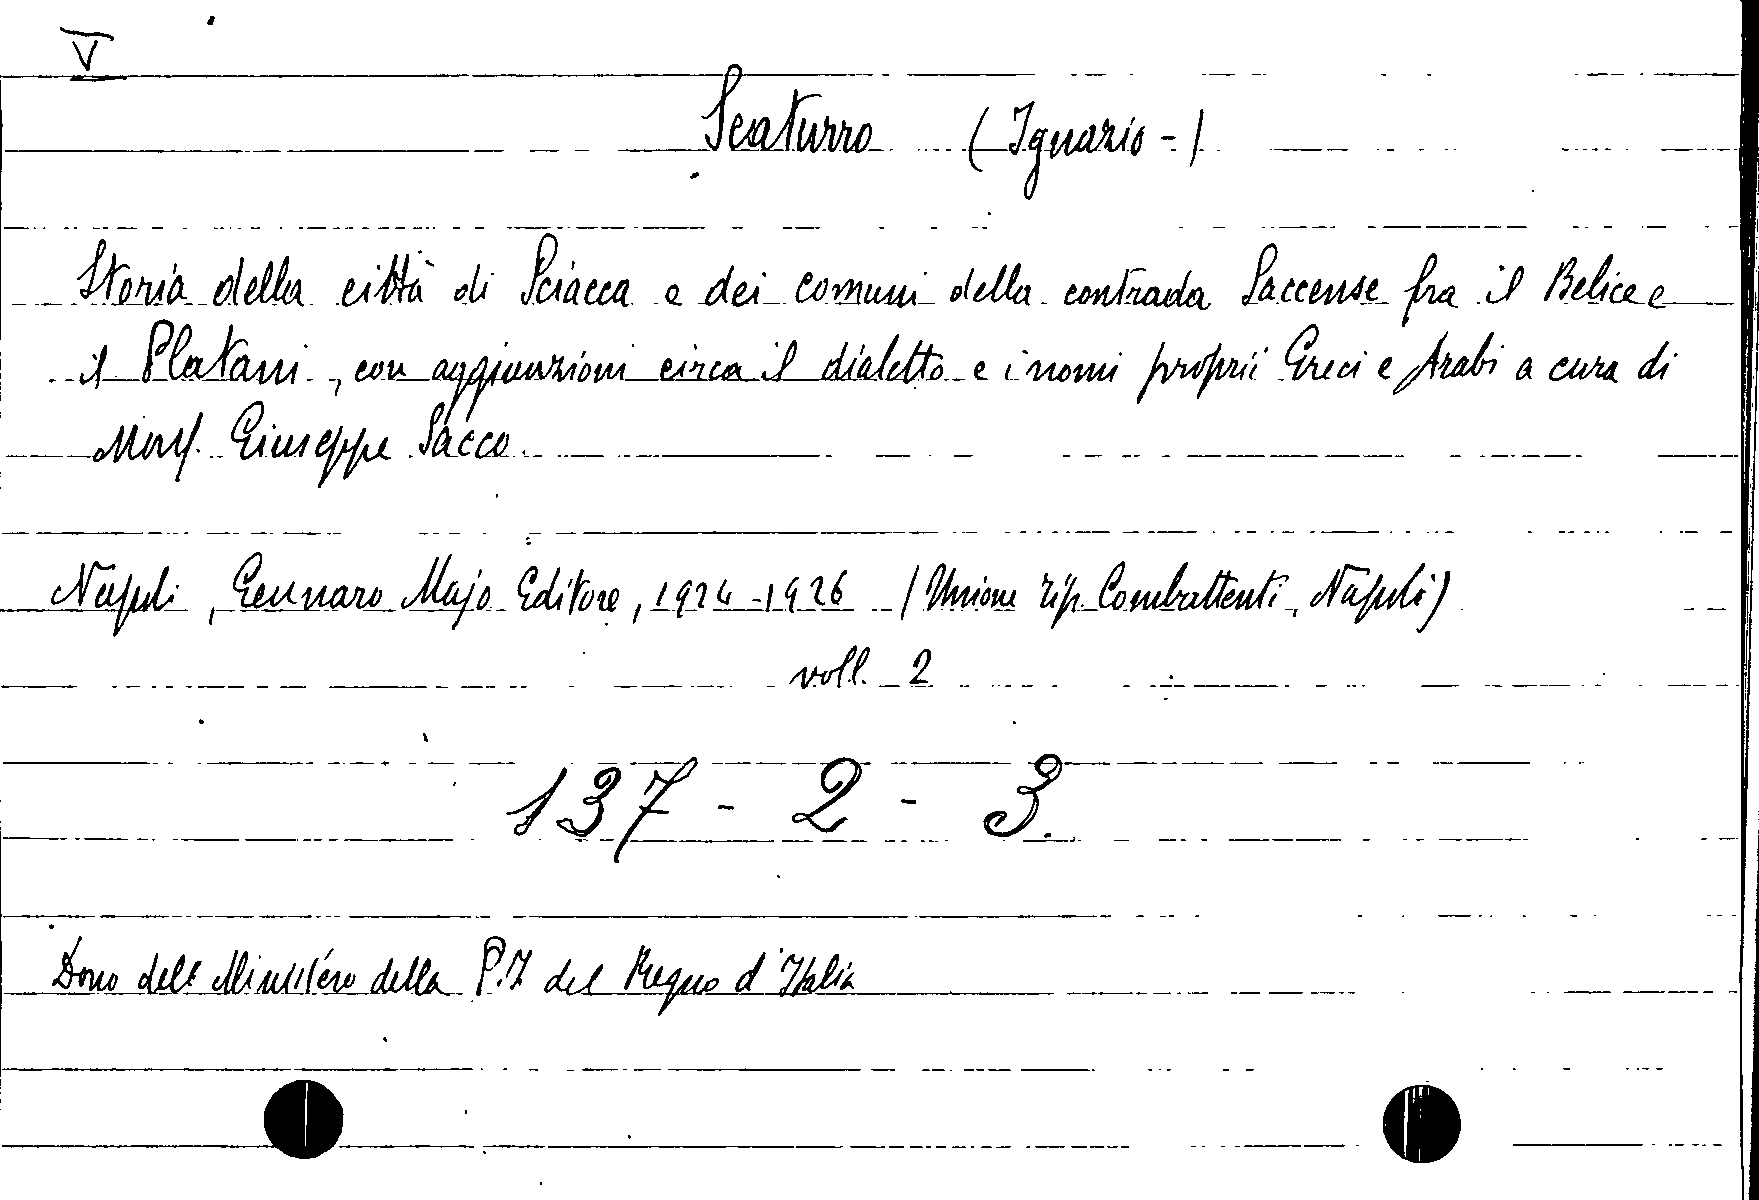 V
Scaturro (Ignazio-)
Storia della città di Sciacca e dei comuni della contrada Saccense fra il Belice e
il Platani, con aggiunzioni circa il dialetto e i nomi proprii Greci e Arabi a cura di
Mons. Giuseppe Sacco
Napoli, Gennaro Majo Editore, 1924-1926 (Unione tip. Combattenti, Napoli)
voll. 2
137 - 2 - 3.
Dono del Ministero della P.I del Regno d'Italia